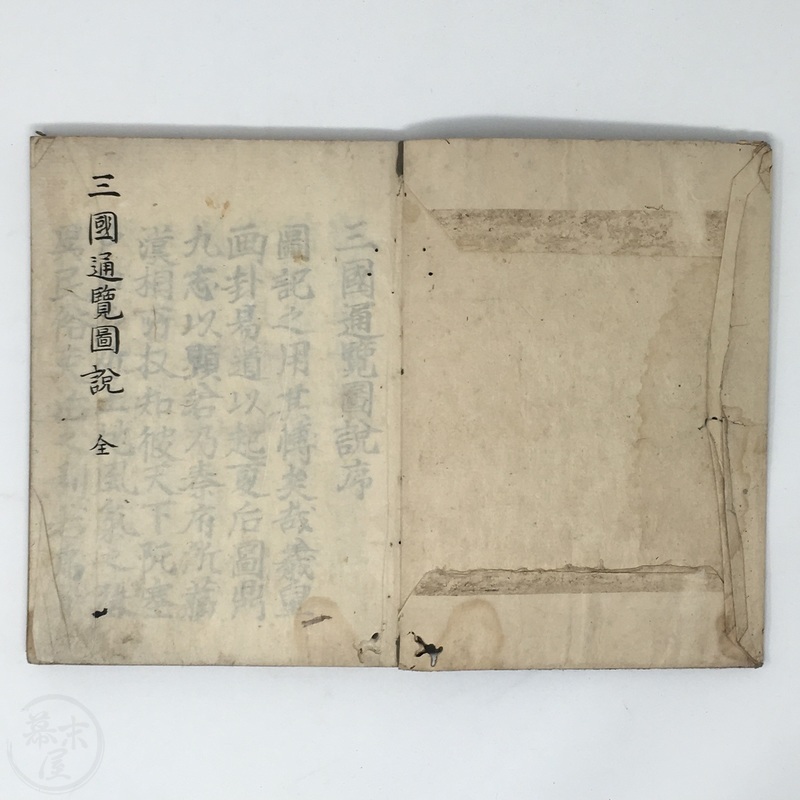 三國通覽圖說
全
三國通覽圖說序
圖記之用其博矣哉羲皇
画卦易道以起夏后圖鼎
九志以顯若乃秦府所藏
漢相所收知彼天下阨塞
地風氣之殊
民俗
幕末屋